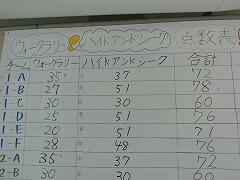 ウォークラリー&ハイドアンドシーク 点数表!
チーム ウォークラリー ハイドアンドシーク 合計
1-A 35 37 72
1-B 27 51 78
1-C 30 30 60
1-D 25 51 76
1-E 20 51 71
1-F 28 48 76
2-A 35 37 72
2-B 30 30 60